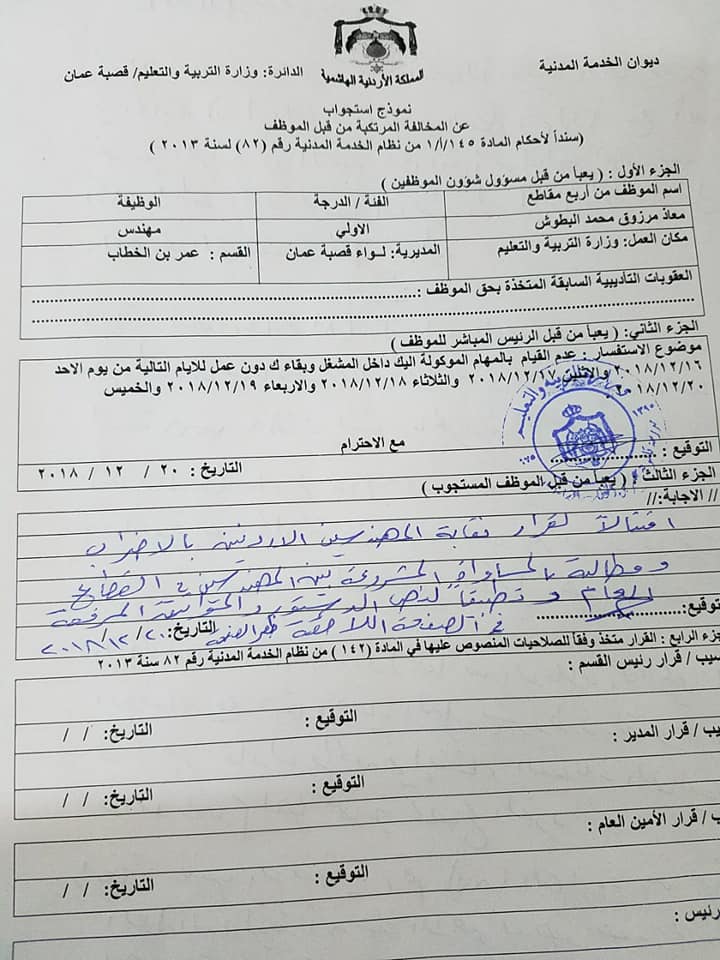 ديوان الخدمة المدنية
المملكة الأردنية الهاشمية
الدائرة: وزارة التربية والتعليم/ قصبة عمان
نموذج استجواب
عن المخالفة المرتكبة من قبل الموظف
(سنداً لأحكام المادة ١٤٥/أ/١ من نظام الخدمة المدنية رقم (٨٢) لسنة ٢٠١٣ )
الجزء الأول : ( يعبأ من قبل مسؤول شؤون الموظفين )
اسم الموظف من أربع مقاطع الفئة / الدرجة الوظيفة
معاذ مرزوق محمد البطوش الاولي مهندس
مكان العمل: وزارة التربية والتعليم المديرية: لـواء قصبة عمان القسم : عمر بن الخطاب
العقوبات التأديبية السابقة المتخذة بحق الموظف :
الجزء الثاني: ( يعبأ من قبل الرئيس المباشر للموظف )
موضوع الاستفسار : عدم القيام بالمهام الموكولة اليك داخل المشغل وبقاء ك دون عمل للايام التالية من يوم الاحد
٢٠١٨/١٢/١٦ والاثنين ٢٠١٨/١٢/١٧ والثلاثاء ٢٠١٨/١٢/١٨ والاربعاء ٢٠١٨/١٢/١٩ والخميس
٢٠١٨/١٢/٢٠
مع الاحترام
التوقيع : التاريخ : ٢٠ / ١٢ / ٢٠١٨
الجزء الثالث : ( يعبأ من قبل الموظف المستجوب )
// الاجابة://
امتثالاً لقرار نقابة المهندسين الاردنيين بالاضراب
ومطالبة بالمساواة المشروعة بين المهندسين في القطاع
العام وتطبيقاً لنص الدستور والمرفقة
التوقيع: في الصفحة اللاحقة ظهر الصفحة التاريخ: ٢٠/ ١٢/ ٢٠١٨
جزء الرابع : القرار متخذ وفقاً للصلاحيات المنصوص عليها في المادة (١٤٢ ) من نظام الخدمة المدنية رقم ٨٢ سنة ٢٠١٣
سيب / قرار رئيس القسم :
التوقيع : التاريخ: / /
يب / قرار المدير :
التوقيع : التاريخ: / /
ب / قرار الأمين العام :
التوقيع : التاريخ: / /
رئيس :